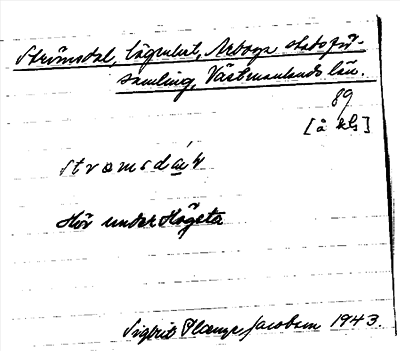 Strömsdal, lägenhet, Arboga stadsför-
samling, Västmanlands län.
89
[å kls]
Strœmsdáɯ
Hör under Högeta
Sigbrit Plænge Jacobson 1943.